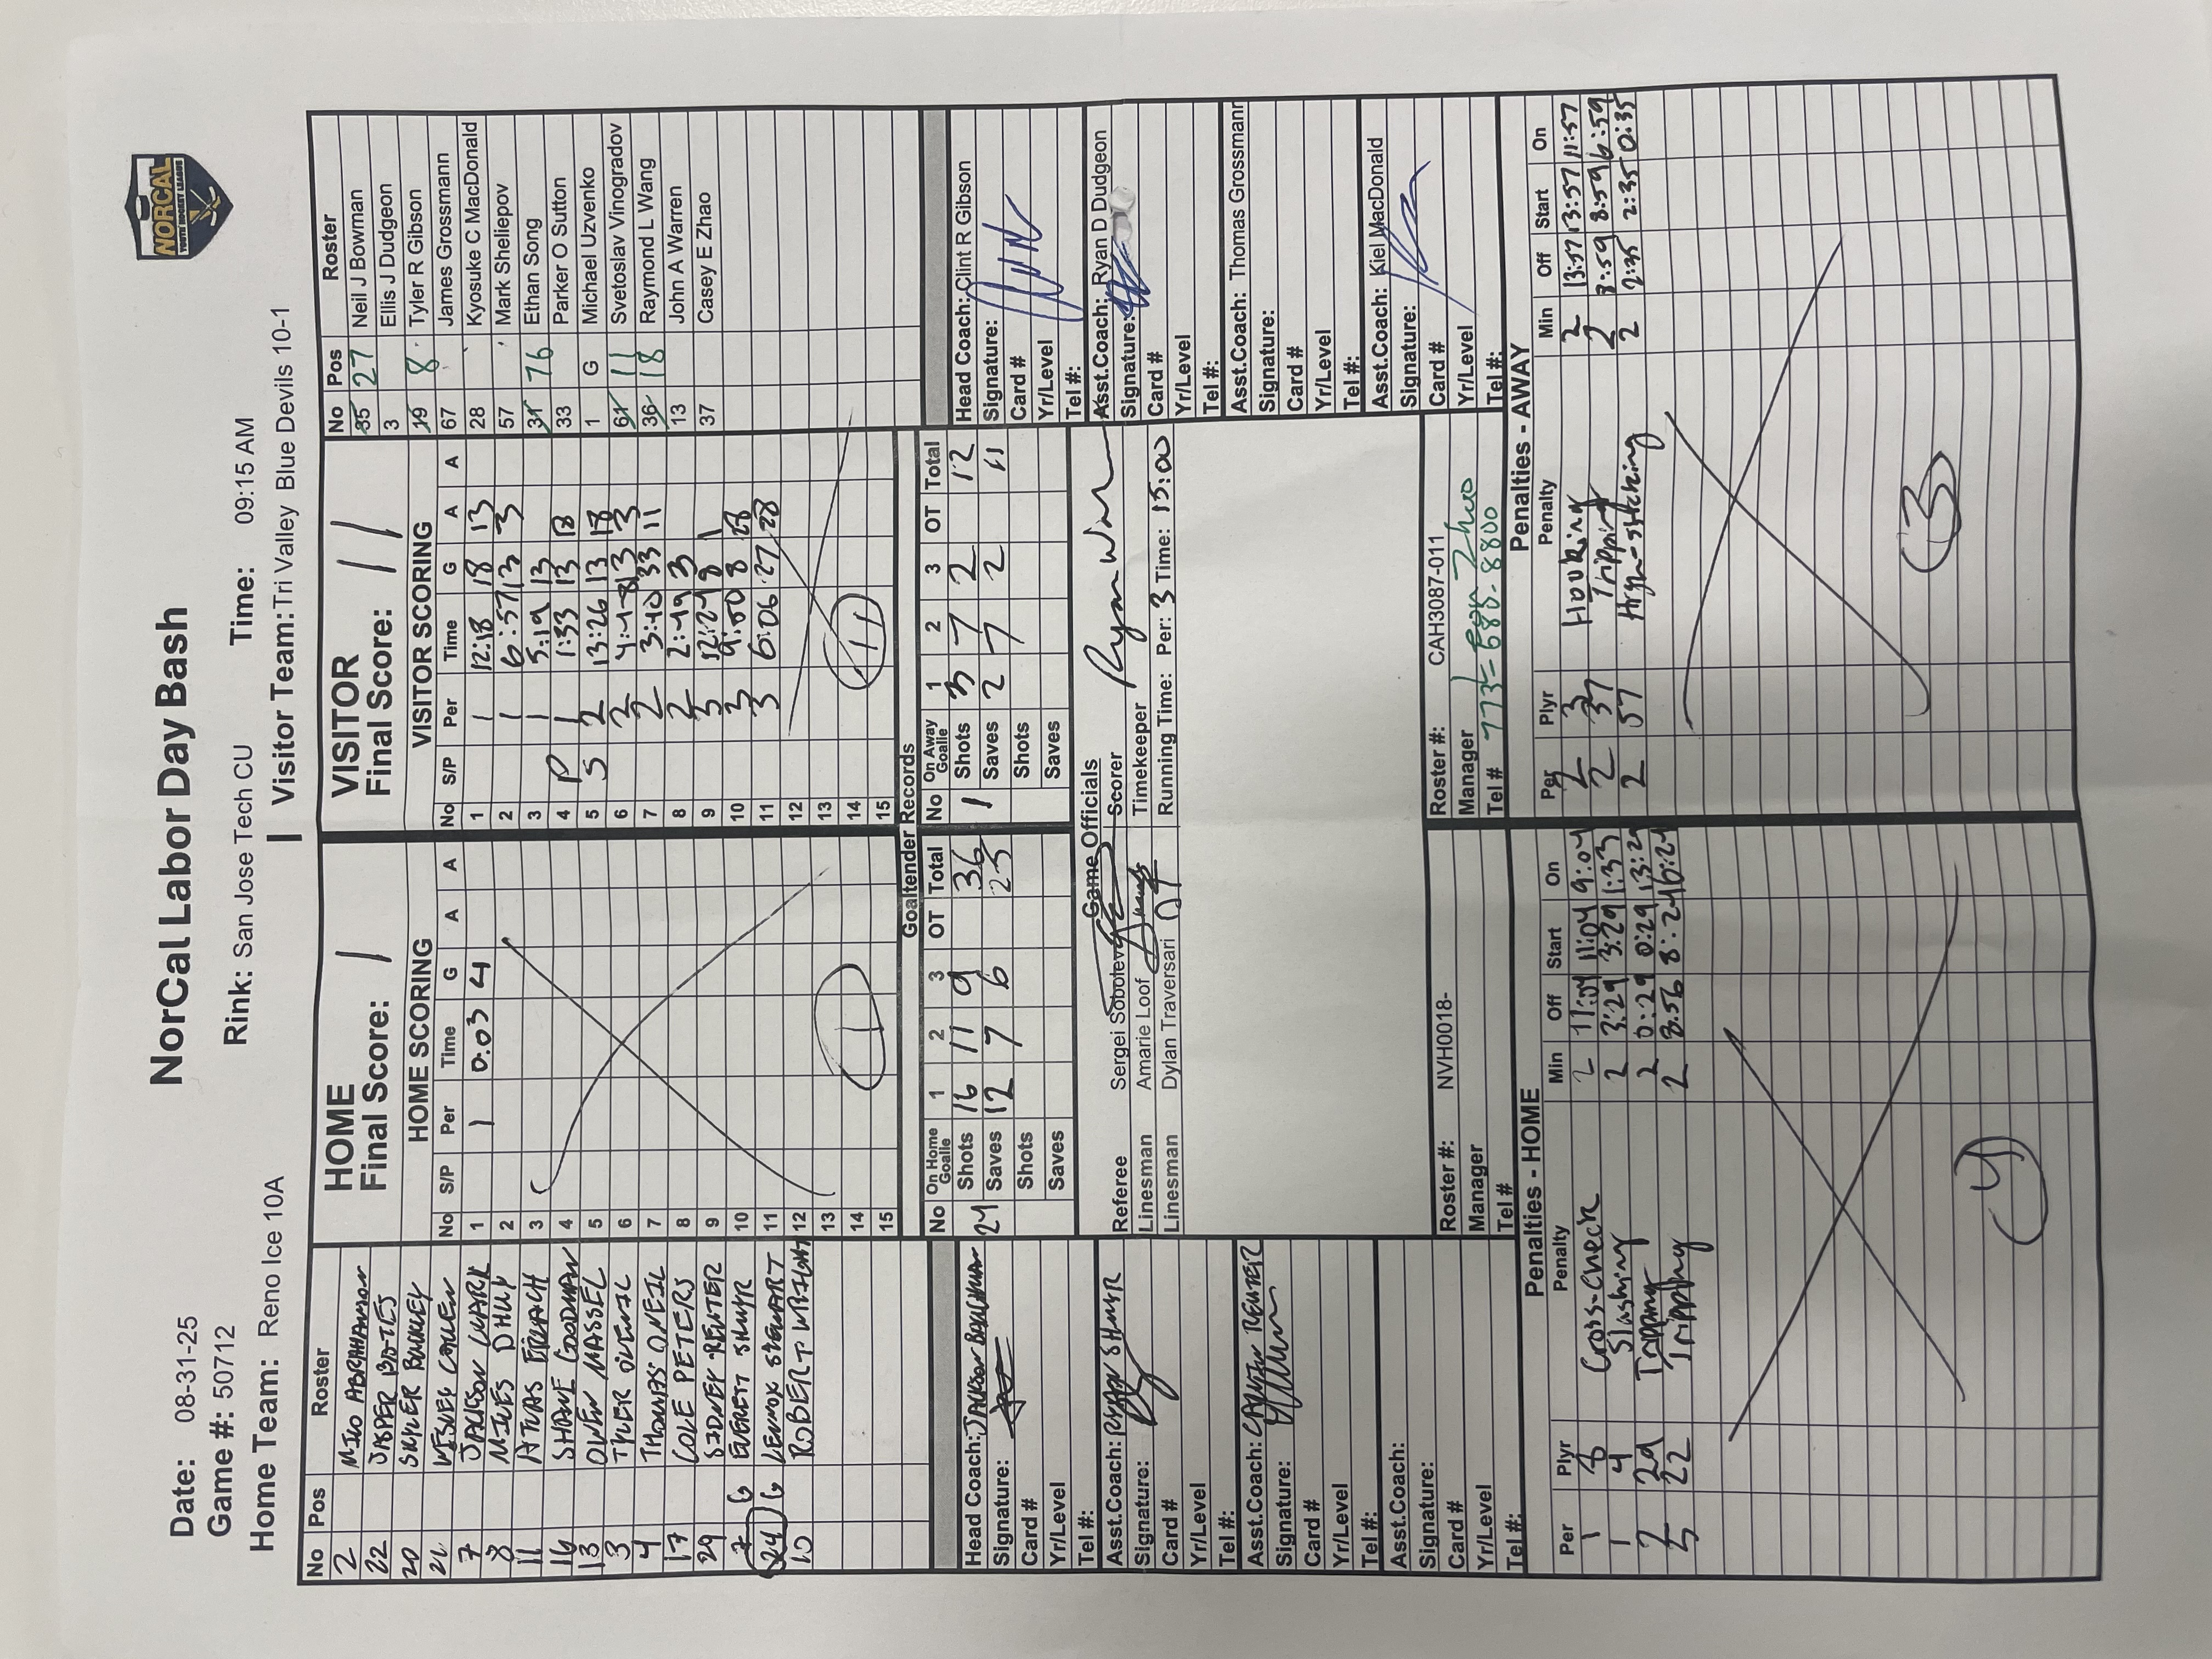 NorCal Labor Day Bash
NORCAL
YOUTH HOCKEY LEAGUE
Date: 08-31-25 Rink: San Jose Tech CU Time: 09:15 AM
Game #: 50712
Home Team: Reno Ice 10A Visitor Team: Tri Valley Blue Devils 10-1
No Pos Roster
2 MILO ABRAHAMSON
22 JASPER BATES
20 SKYLER BUCKLEY
WESLEY
7 JACKSON CLARK
8 MILES DHUY
11 ATLAS
16 SHANE GOODMAN
13 OWEN MASSEL
3 TYLER
4 THOMAS ONEIL
17 COLE PETERS
29 SIDNEY REUTER
G EVERETT SHMYR
24 G LENNOX STEWART
10 ROBERT WRIGHT
HOME
Final Score: 1
HOME SCORING
No S/P Per Time G A A
1 1 0:03 4
2
3
4
5
6
7
8
9
10
11
12
13
14
15
1
VISITOR
Final Score: 11
VISITOR SCORING
No S/P Per Time G A A
1 1 12:18 18 13
2 1 6:57 13 3
3 1 5:19 13
4 P 1 1:33 13 18
5 S 2 13:26 13 18
6 2 4:48 13 3
7 2 3:40 33 11
8 2 2:49 3
9 3 12:29 8 1
10 3 9:50 8 28
11 3 6:06 27 28
12
13
14
15
11
No Pos Roster
35 27 Neil J Bowman
3 Ellis J Dudgeon
19 8 Tyler R Gibson
67 James Grossmann
28 Kyosuke C MacDonald
57 Mark Sheliepov
31 76 Ethan Song
33 Parker O Sutton
1 G Michael Uzvenko
61 11 Svetoslav Vinogradov
36 18 Raymond L Wang
13 John A Warren
37 Casey E Zhao
Goaltender Records
No On Home Goalie 1 2 3 OT Total
24 Shots 16 11 9 36
Saves 12 7 6 25
Shots
Saves
No On Away Goalie 1 2 3 OT Total
1 Shots 3 7 2 12
Saves 2 7 2 11
Shots
Saves
Head Coach: JACKSON
Signature:
Card #
Yr/Level
Tel #:
Asst.Coach: RYAN SHMYR
Signature:
Card #
Yr/Level
Tel #:
Asst.Coach: CAITLIN REUTER
Signature:
Card #
Yr/Level
Tel #:
Asst.Coach:
Signature:
Card #
Yr/Level
Tel #:
Game Officials
Referee Sergei Sobolev Scorer Ryan
Linesman Amarie Loof Timekeeper
Linesman Dylan Traversari Running Time: Per: 3 Time: 15:00
Head Coach: Clint R Gibson
Signature:
Card #
Yr/Level
Tel #:
Asst.Coach: Ryan D Dudgeon
Signature:
Card #
Yr/Level
Tel #:
Asst.Coach: Thomas Grossmann
Signature:
Card #
Yr/Level
Tel #:
Asst.Coach: Kiel MacDonald
Signature:
Card #
Yr/Level
Tel #:
Roster #: NVH0018-
Manager
Tel #
Roster #: CAH3087-011
Manager Zhao
Tel # 773-688-8800
Penalties - HOME
Per Plyr Penalty Min Off Start On
1 8 Cross-check 2 11:04 11:04 9:04
1 4 Slashing 2 3:29 3:29 1:33
2 29 Tripping 2 0:29 0:29 13:29
3 22 Tripping 2 8:56 8:24 6:24
4
Penalties - AWAY
Per Plyr Penalty Min Off Start On
2 3 Hooking 2 13:57 13:57 11:57
2 37 Tripping 2 8:59 8:59 6:59
2 57 High-sticking 2 2:35 2:35 0:35
3